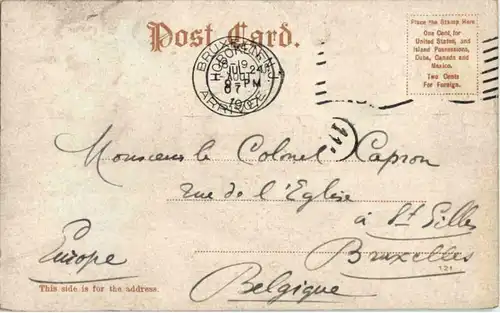 Post Card.
Place the Stamp Here
One Cent, for
United States, and
Island Possessions,
Cuba, Canada and
Mexico.
Two Cents
For Foreign.
Monsieur le Colonel Capron
rue de l'Eglise
à St Gilles
Bruxelles
Europe
Belgique
This side is for the address.
121